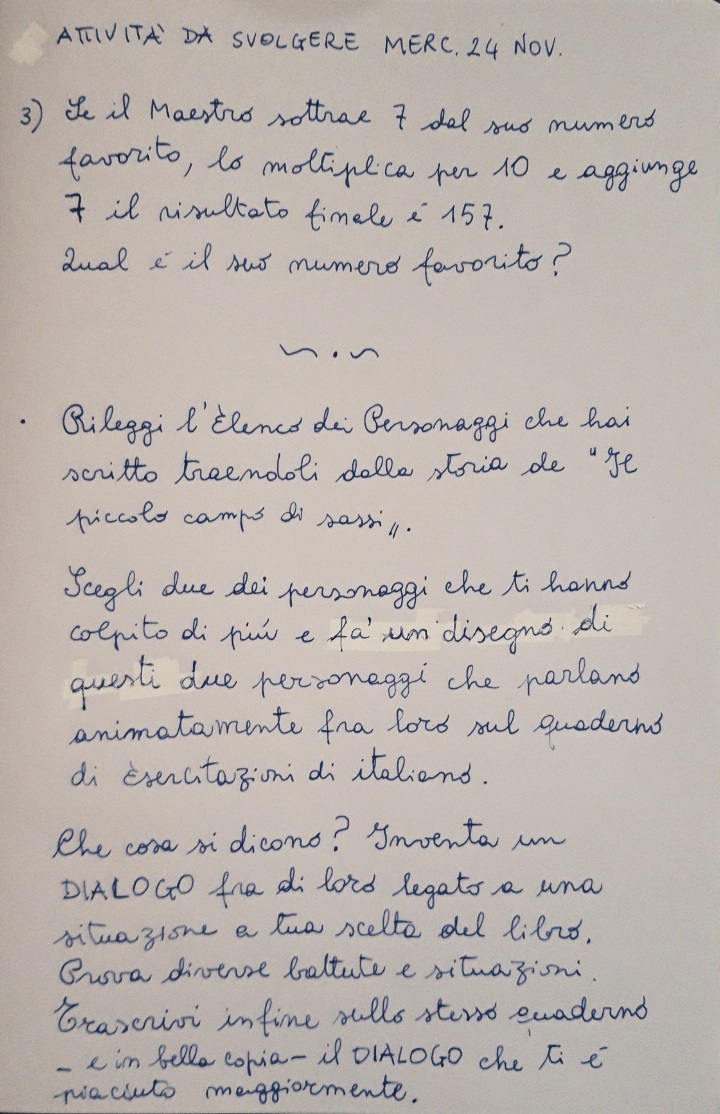 ATTIVITÀ DA SVOLGERE MERC. 24 NOV.
3) Se il Maestro sottrae 7 dal suo numero
favorito, lo moltiplica per 10 e aggiunge
7 il risultato finale é 157.
Qual é il suo numero favorito?
~ . ~
· Rileggi l'Èlenco dei Personaggi che hai
scritto traendoli dalla storia de "Il
piccolo campo di sassi„.
Scegli due dei personaggi che ti hanno
colpito di piú e fa' un disegno di
questi due personaggi che parlano
animatamente fra loro sul quaderno
di Èsercitazioni di italiano.
Che cosa si dicono? Inventa un
DIALOGO fra di loro legato a una
situazione a tua scelta del libro.
Prova diverse battute e situazioni.
Trascrivi infine sullo stesso quaderno
- e in bella copia - il DIALOGO che ti é
piaciuto maggiormente.